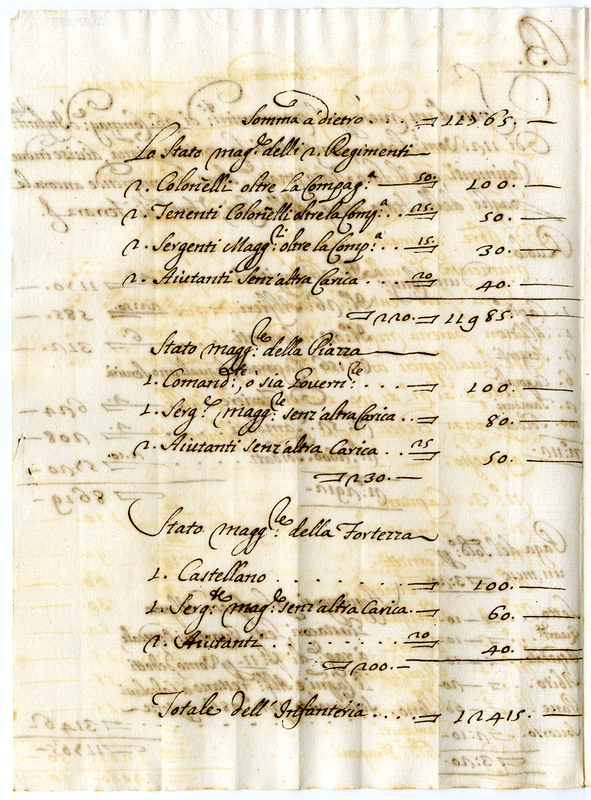 Somma à dietro . . . . = 11765. —
Lo Stato mag.re delli 2. Regimenti
2. Colonelli oltre la Compag.a — 50. = 100. —
2. Tenenti Colonelli oltre la Comp.a . . 25. = 50. —
2. Sergenti Magg.ri oltre la Comp.a . . 15. = 30 —
2. Aiutanti senz'altra Carica . . 20 = 40. —
= 220. = 11985. —
Stato magg.re della Piazza
1. Comand.te, ò sia Govern.re . . . = 100. —
1. Serg.te magg.re senz'altra Carica . . = 80. —
2. Aiutanti senz'altra Carica . . 25 = 50. —
= 230. —
Stato magg.re della Fortezza
1. Castellano . . . . . . . = 100. —
1. Serg.te mag.re senz'altra Carica. = 60. —
2. Aiutanti . . . . . . . 20 = 40. —
= 200. —
Totale dell'Infanteria . . . . = 12415. —